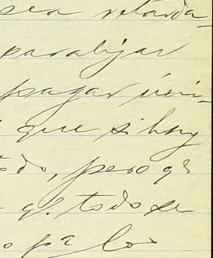 sea retarda-
para fijar
pagar úni-
que si hoy
todo, pero qe
qe. todo se
o pa. los